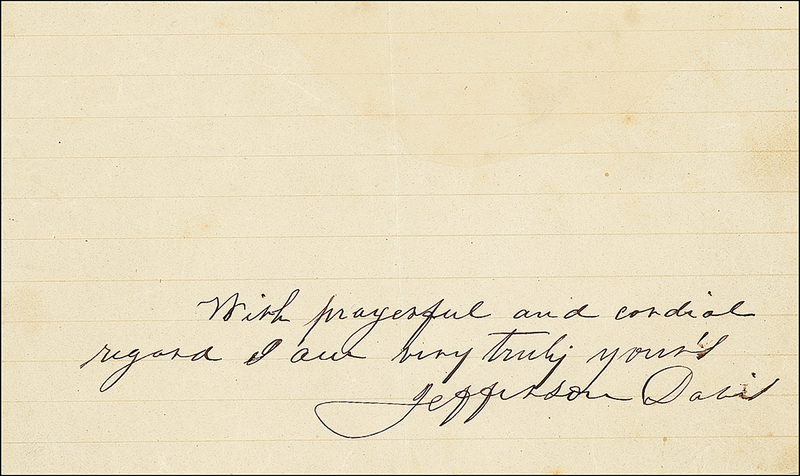 With prayerful and cordial
regard I am very truly your's
Jefferson Davis